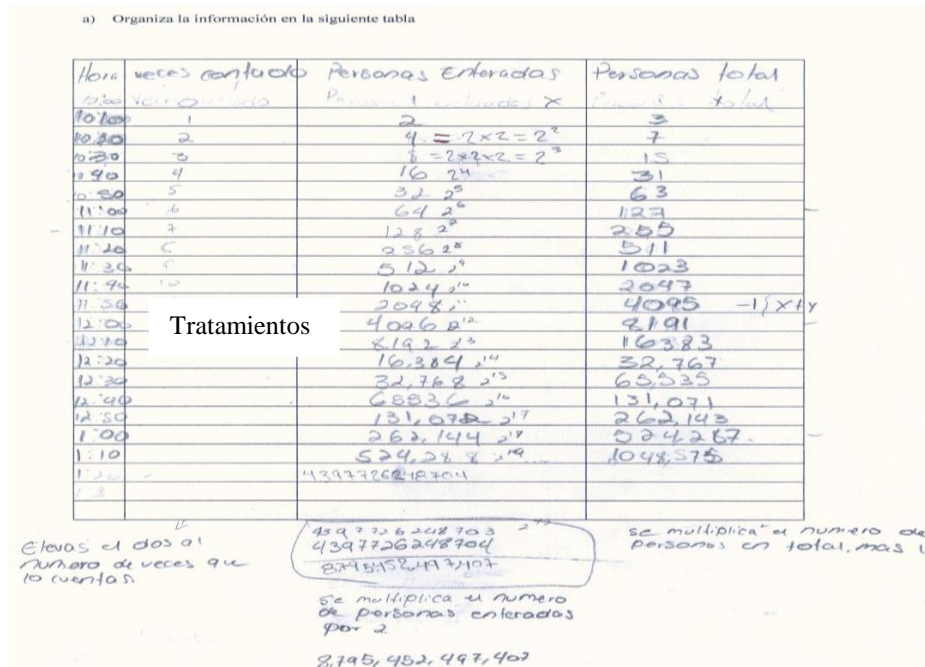 a) Organiza la información en la siguiente tabla
Hora veces contado Personas Enteradas Personas total
10:00 0 1 x total
10:10 1 2 3
10:20 2 4 = 2x2 = 2² 7
10:30 3 8 = 2x2x2 = 2³ 15
10:40 4 16 2⁴ 31
10:50 5 32 2⁵ 63
11:00 6 64 2⁶ 127
11:10 7 128 2⁷ 255
11:20 256 2⁸ 511
11:30 512 2⁹ 1023
11:40 10 1024 2¹⁰ 2047
11:50 2048 4095 -1 { x+y
12:00 4096 2¹² 8191
12:10 8192 2¹³ 16383
Tratamientos
12:20 16,384 2¹⁴ 32,767
12:30 32,768 2¹⁵ 65,535
12:40 65536 2¹⁶ 131,071
12:50 131,072 2¹⁷ 262,143
1:00 262,144 2¹⁸ 524,287
1:10 524,288 2¹⁹ 1048,575
1:20 4397726248704
Elevas el dos al
numero de veces que
lo cuentas.
4397726248703
4397726248704
8795452,497,407
se multiplica el numero de
personas en total, mas 1
se multiplica el numero
de personas enteradas
por 2
8,795,452,497,407